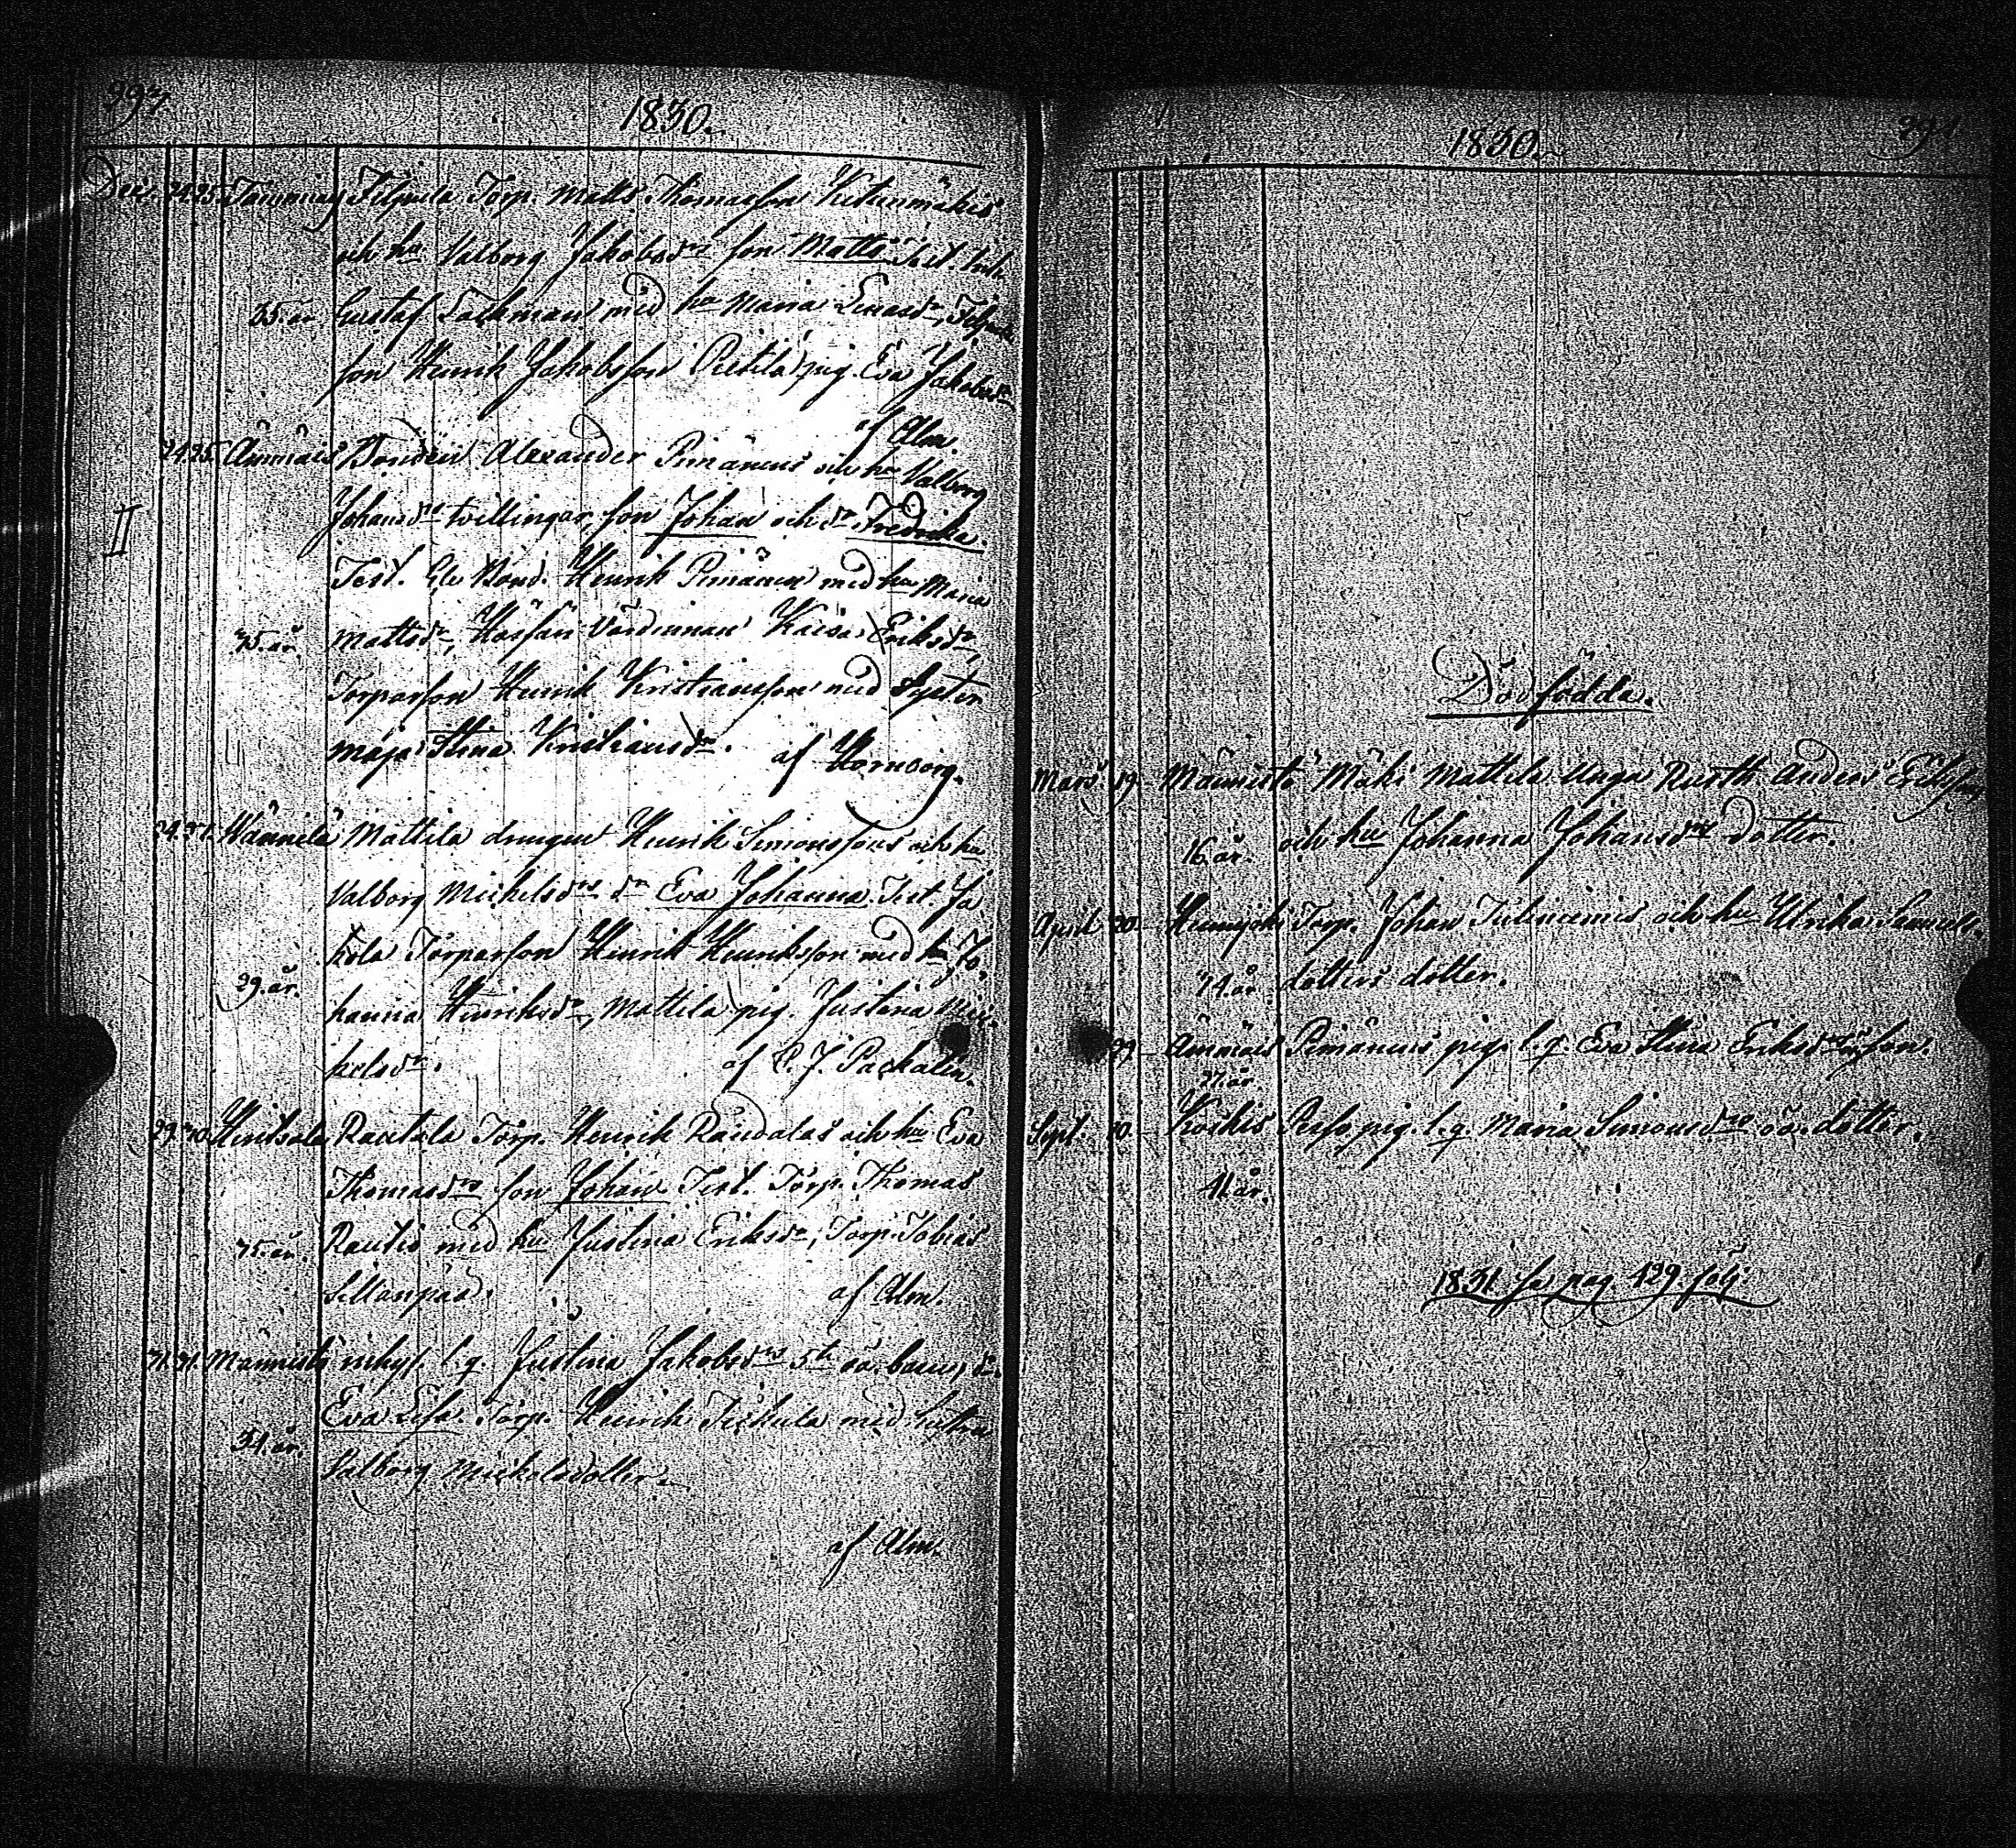 1830.
Dec. 24. 25. Tammiais Filpula Torp. Matts Thomasson Kitunmäkis
och hu Valborg Jakobsdrs son Matts. Test. Inh.
35. år. Gustaf Talkman med hu Maria Lenasdr, Filpula
son Henrik Jakobsson Pietilä pig. Eva Jakobsdr
af Alm.
24. 25. Ämmäis Bonden Alexander Pimänens och hu Valborg
II Johansdrs tvillingar, son Johan och dr Fredrika.
Test. Gle Bond. Henrik Pimänen med hu Maria
35. år. Mattsdr, Värdinnan Kaisa Eriksdr,
Torparson Henrik Kristiansson med Syster
Maja Stina Kristiansdr. af Hornborg.
24. 27. Männilä Mattila drengen Henrik Simonssons och hu
Valborg Michelsdrs dr Eva Johanna. Test. Ja
kola Torparson Henrik Henriksson med hu Jo
29. år. hanna Henriksdr, Mattila pig. Justina Mic
kelsdr. af P. J. Pachalin.
29. 30. Hintsala Rautala Torp. Henrik Raudalas och hu Eva
Thomasdrs son Johan Test. Torp. Thomas
35. år. Rautio med hu Justina Eriksdr, Torp. Tobias
Sillanpää. af Alm.
31. 31. Männistö inhys. l. q. Justina Jakobsdrs 5te oä. barn, dr.
Eva Lisa. Torp. Henrik Tickula med hustru
34. år. Valborg Mickelsdotter.
af Alm.
1830.
Dödfödde.
Mars. 19. Männistö Mäki Mattila Unga Rusth. Anders Erikssons
16. år. och hu Johanna Johansdrs dotter.
April 20. Torp. Johan och hu Ulrika Samuels-
34. år. dotters dotter.
29. Ämmäis Pimänens pig. l. q. Eva Stina Eriksdrs son.
27. år.
Sept. 10. Koskis pig. l. q. Maria Simonsdrs oä. dotter.
41. år.
1831. se pag. 429. följ.